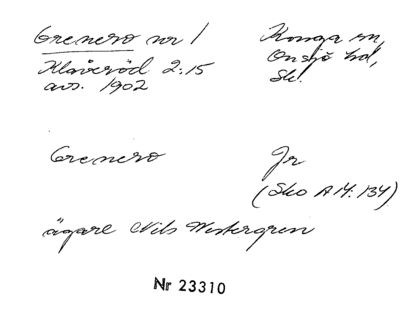 Grenero nr 1
Klåveröd 2:15
avs. 1902
Konga sn,
Onsjö hd,
Sk.
Grenero
Jr
(Sko A 14: 134)
ägare Nils Westergren
Nr 23310